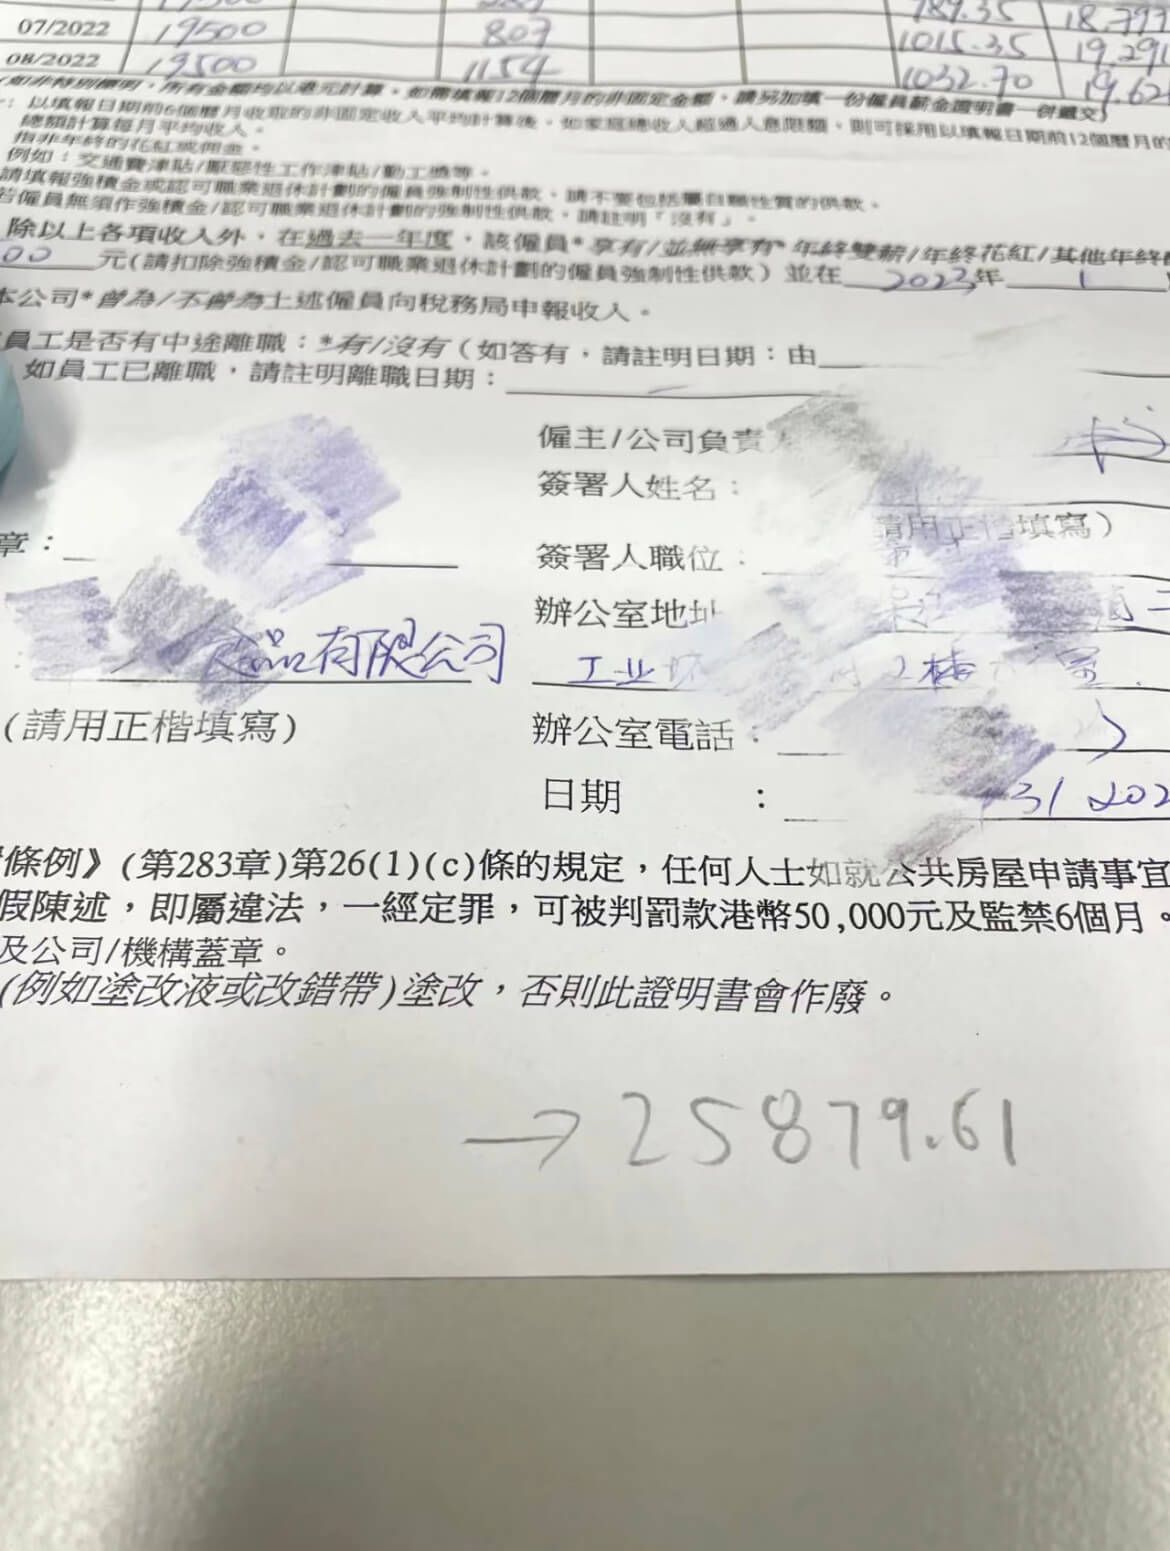 07/2022 19500 807 1015.35 19,291
08/2022 19500 1154 1032.70 19.62
(如非特別標明，所有金額均以港元計算。如需填報12個曆月的非固定金額，請另加填一份僱員薪金證明書一併繳交)
: 以填報日期前6個曆月收取的非固定收入平均計算後，如家庭總收入超過入息限額，則可採用以填報日期前12個曆月的
總額計算每月平均收入。
指非年終的花紅或佣金。
例如：交通費津貼/厭惡性工作津貼/勤工獎等。
請填報強積金或認可職業退休計劃的僱員強制性供款，請不要包括屬自願性質的供款。
若僱員無須作強積金/認可職業退休計劃的強制性供款，請註明「沒有」。
除以上各項收入外，在過去一年度，該僱員*享有/並無享有*年終雙薪/年終花紅/其他年終
00 元(請扣除強積金/認可職業退休計劃的僱員強制性供款)並在 2023年 1
本公司*曾為/不曾為上述僱員向稅務局申報收入。
員工是否有中途離職：*有/沒有(如答有，請註明日期：由
如員工已離職，請註明離職日期：
僱主/公司負責
簽署人姓名：
請用正楷填寫)
章：
簽署人職位：
辦公室地址
品有限公司
工业 2楼
(請用正楷填寫)
辦公室電話：
日期 : 31 202
條例》(第283章)第26(1)(c)條的規定，任何人士如就公共房屋申請事宜
假陳述，即屬違法，一經定罪，可被判罰款港幣50,000元及監禁6個月。
及公司/機構蓋章。
(例如塗改液或改錯帶)塗改，否則此證明書會作廢。
→25879.61